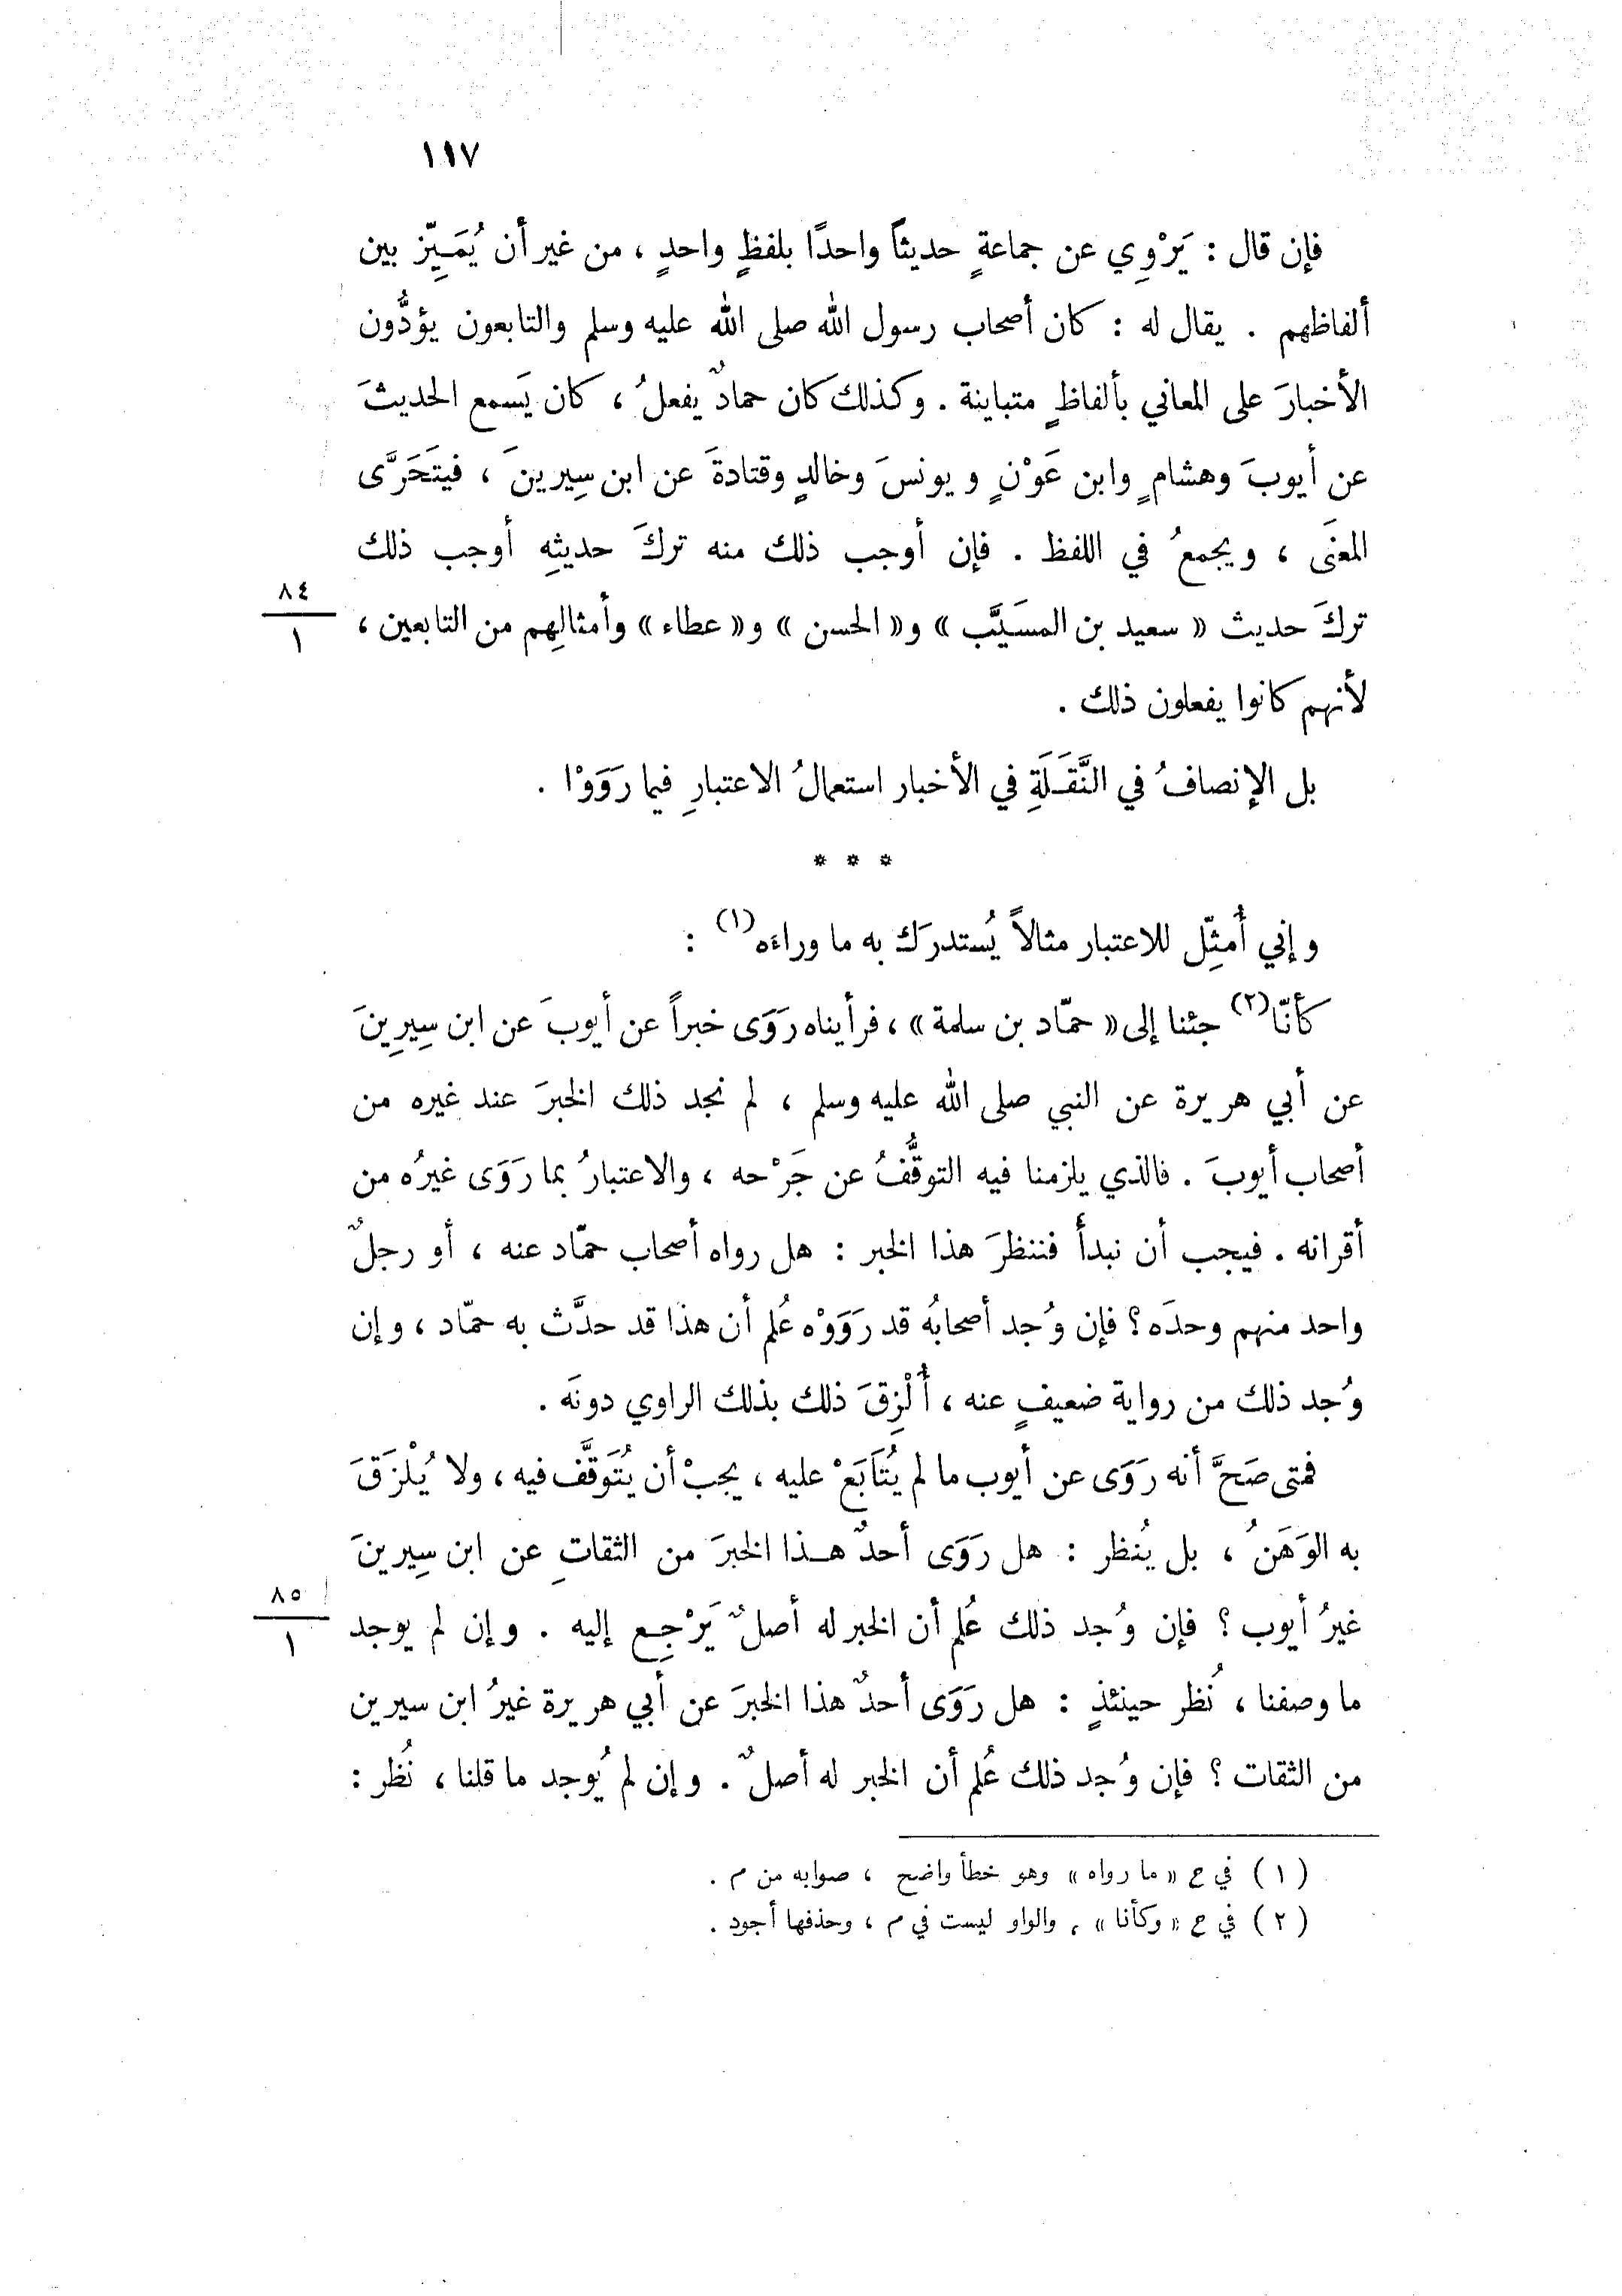 ١١٧
فإن قال : يَرْوِي عن جماعةٍ حديثاً واحدًا بلفظٍ واحدٍ ، من غير أن يُمَيِّز بين
ألفاظهم . يقال له : كان أصحاب رسول الله صلى الله عليه وسلم والتابعون يؤدُّون
الأخبارَ على المعاني بألفاظٍ متباينة . وكذلك كان حمادٌ يفعلُ ، كان يَسمع الحديثَ
عن أيوبَ وهشامٍ وابن عَوْنٍ ويونسَ وخالدٍ وقتادةَ عن ابن سِيرينَ ، فيتَحَرَّى
المعنَى ، ويجمعُ في اللفظ . فإن أوجب ذلك منه تركَ حديثِهِ أوجب ذلك
تركَ حديث « سعيد بن المسَيَّب » و« الحسن » و« عطاء » وأمثالِهم من التابعين ،
٨٤
١
لأنهم كانوا يفعلون ذلك .
بل الإنصافُ في النَّقَلَةِ في الأخبار استعمالُ الاعتبارِ فيما رَوَوْا .
* * *
وإني أُمثِّل للاعتبار مثالاً يُستدرَك به ما وراءه (١) :
كأنّا (٢) جئنا إلى « حمّاد بن سلمة » ، فرأيناه رَوَى خبراً عن أيوبَ عن ابن سِيرِينَ
عن أبي هريرة عن النبي صلى الله عليه وسلم ، لم نجد ذلك الخبرَ عند غيره من
أصحاب أيوبَ . فالذي يلزمنا فيه التوقُّفُ عن جَرْحه ، والاعتبارُ بما رَوَى غيرُه من
أقرانه . فيجب أن نبدأ فننظرَ هذا الخبر : هل رواه أصحاب حمّاد عنه ، أو رجلٌ
واحد منهم وحدَه ؟ فإن وُجد أصحابُه قد رَوَوْه عُلم أن هذا قد حدَّث به حمّاد ، وإن
وُجد ذلك من رواية ضعيفٍ عنه ، أُلْزِقَ ذلك بذلك الراوي دونَه .
فمتى صَحَّ أنه رَوَى عن أيوب ما لم يُتَابَعْ عليه ، يجبْ أن يُتَوَقَّف فيه ، ولا يُلْزَقَ
به الوَهَنُ ، بل يُنظر : هل رَوَى أحدٌ هـذا الخبرَ من الثقاتِ عن ابن سِيرينَ
غيرُ أيوب ؟ فإن وُجد ذلك عُلم أن الخبر له أصلٌ يَرْجِع إليه . وإن لم يوجد
٨٥
١
ما وصفنا ، نُظر حينئذٍ : هل رَوَى أحدٌ هذا الخبرَ عن أبي هريرة غيرُ ابن سيرين
من الثقات ؟ فإن وُجد ذلك عُلم أن الخبر له أصلٌ . وإن لم يُوجد ما قلنا ، نُظر :
( ١ ) في ح « ما رواه » وهو خطأ واضح ، صوابه من م .
( ٢ ) في ح « وكأنا » ، والواو ليست في م ، وحذفها أجود .